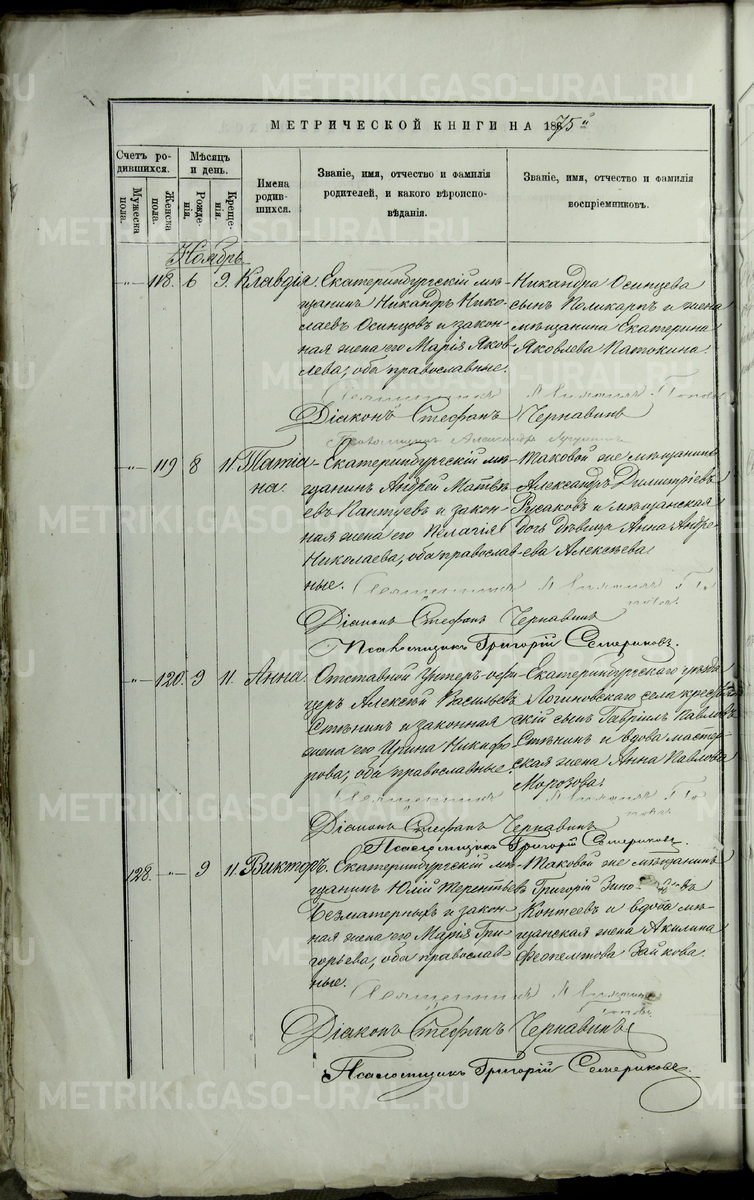 МЕТРИЧЕСКОЙ КНИГИ НА 1875й
Счетъ родившихся.
Мужеска пола.
Женска пола.
Мѣсяцъ и день.
Рожденія.
Крещенія.
Имена родившихся.
Званіе, имя, отчество и фамилія родителей, и какого вѣроисповѣданія.
Званіе, имя, отчество и фамилія воспріемниковъ.
Ноябрь
118. 6 9. Клавдія. Екатеринбургскій мѣ-
щанинъ Никандръ Нико-
лаевъ Осинцовъ и закон-
ная жена его Марія Яков-
лева, оба православные.
Никандра Осинцева
сынъ Поликарпъ и жена
мѣщанина Екатерина
Яковлева Патокина.
Священникъ
Діаконъ Стефанъ Чернавинъ
Псаломщикъ Александръ
119 8 11 Татіа-
на.
Екатеринбургскій мѣ-
щанинъ Андрей Матвѣ-
евъ Пантуевъ и закон-
ная жена его Пелагія
Николаева, оба православ-
ные.
Таковой же мѣщанинъ
Александръ Димитріевъ
Русаковъ и мѣщанская
дочь дѣвица Анна Андре-
ева Алексѣева
Священникъ
Діаконъ Стефанъ Чернавинъ
Псаломщикъ Григорій Семериковъ.
120. 9 11. Анна. Отставной Унтеръ-офи-
церъ Алексѣй Васильевъ
Стѣнинъ и законная
жена его Ирина Никифо-
рова, оба православные.
Екатеринбургскаго уѣзда
Логиновскаго села крестьян-
скій сынъ Гавріилъ Павловъ
Стѣнинъ и вдова мастер-
ская жена Анна Павлова
Морозова
Священникъ
Діаконъ Стефанъ Чернавинъ
Псаломщикъ Григорій Семериковъ.
128. 9 11. Викторъ. Екатеринбургскій мѣ-
щанинъ Юлій Терентьевъ
Безматерныхъ и закон-
ная жена его Марія Гри-
горьева, оба православ-
ные.
Таковой же мѣщанинъ
Григорій
Контеевъ и вдова мѣ-
щанская жена Акилина
Феопемтова Зайкова.
Священникъ
Діаконъ Стефанъ Чернавинъ
Псаломщикъ Григорій Семериковъ.
METRIKI.GASO-URAL.RU